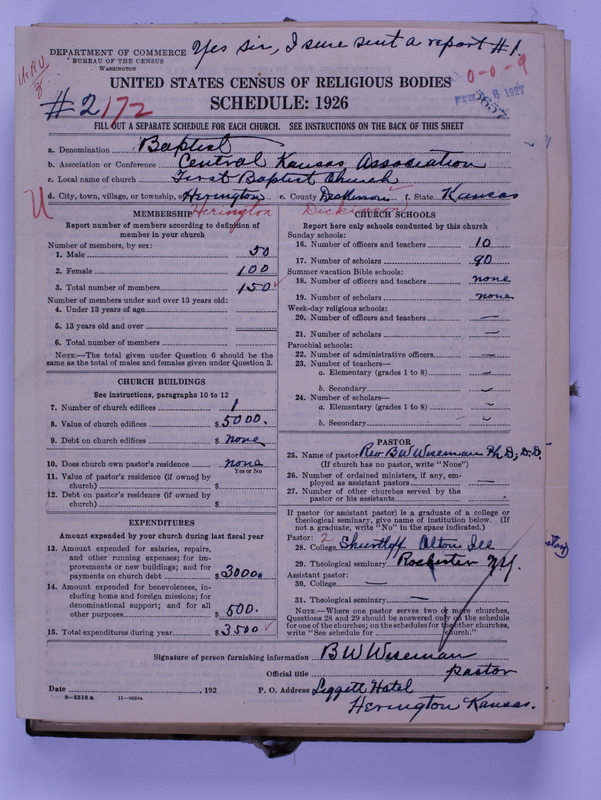 Yes sir, I sure sent a report #1
DEPARTMENT OF COMMERCE
BUREAU OF THE CENSUS
WASHINGTON
0-0-9
UNITED STATES CENSUS OF RELIGIOUS BODIES
SCHEDULE: 1926
#2 172
5657
FILL OUT A SEPARATE SCHEDULE FOR EACH CHURCH. SEE INSTRUCTIONS ON THE BACK OF THIS SHEET
a. Denomination Baptist
b. Association or Conference Central Kansas Association
c. Local name of church First Baptist Church
d. City, town, village, or township, Herington e. County Dickinson f. State Kansas
U Herington Dickinson
MEMBERSHIP
Report number of members according to definition of member in your church
Number of members, by sex:
1. Male 50
2. Female 100
3. Total number of members 150
Number of members under and over 13 years old:
4. Under 13 years of age
5. 13 years old and over
6. Total number of members
NOTE.—The total given under Question 6 should be the
same as the total of males and females given under Question 3.
CHURCH BUILDINGS
See instructions, paragraphs 10 to 12
7. Number of church edifices 1
8. Value of church edifices $ 5000.
9. Debt on church edifices $ none
10. Does church own pastor's residence none
Yes or No
11. Value of pastor's residence (if owned by
church) $
12. Debt on pastor's residence (if owned by
church) $
EXPENDITURES
Amount expended by your church during last fiscal year
13. Amount expended for salaries, repairs,
and other running expenses; for im-
provements or new buildings; and for
payments on church debt $ 3000.
14. Amount expended for benevolences, in-
cluding home and foreign missions; for
denominational support; and for all
other purposes $ 500.
15. Total expenditures during year $ 3500
CHURCH SCHOOLS
Report here only schools conducted by this church
Sunday schools:
16. Number of officers and teachers 10
17. Number of scholars 90
Summer vacation Bible schools:
18. Number of officers and teachers none
19. Number of scholars none
Week-day religious schools:
20. Number of officers and teachers —
21. Number of scholars —
Parochial schools:
22. Number of administrative officers —
23. Number of teachers—
a. Elementary (grades 1 to 8)
b. Secondary
24. Number of scholars—
a. Elementary (grades 1 to 8)
b. Secondary
PASTOR
25. Name of pastor Rev B W Wiseman Ph D; D.D.
(If church has no pastor, write "None")
26. Number of ordained ministers, if any, em-
ployed as assistant pastors —
27. Number of other churches served by the
pastor or his assistants
If pastor (or assistant pastor) is a graduate of a college or
theological seminary, give name of institution below. (If
not a graduate, write "No" in the space indicated.)
Pastor: 2
28. College Shurtleff Alton Ill
29. Theological seminary Rochester N.Y.
Assistant pastor:
30. College —
31. Theological seminary —
NOTE.—Where one pastor serves two or more churches,
Questions 28 and 29 should be answered only on the schedule
for one of the churches; on the schedules for the other churches,
write "See schedule for church."
Signature of person furnishing information B W Wiseman
Official title pastor
Date , 192 P. O. Address Leggett Hotel
8—5518 a
Herington Kansas.